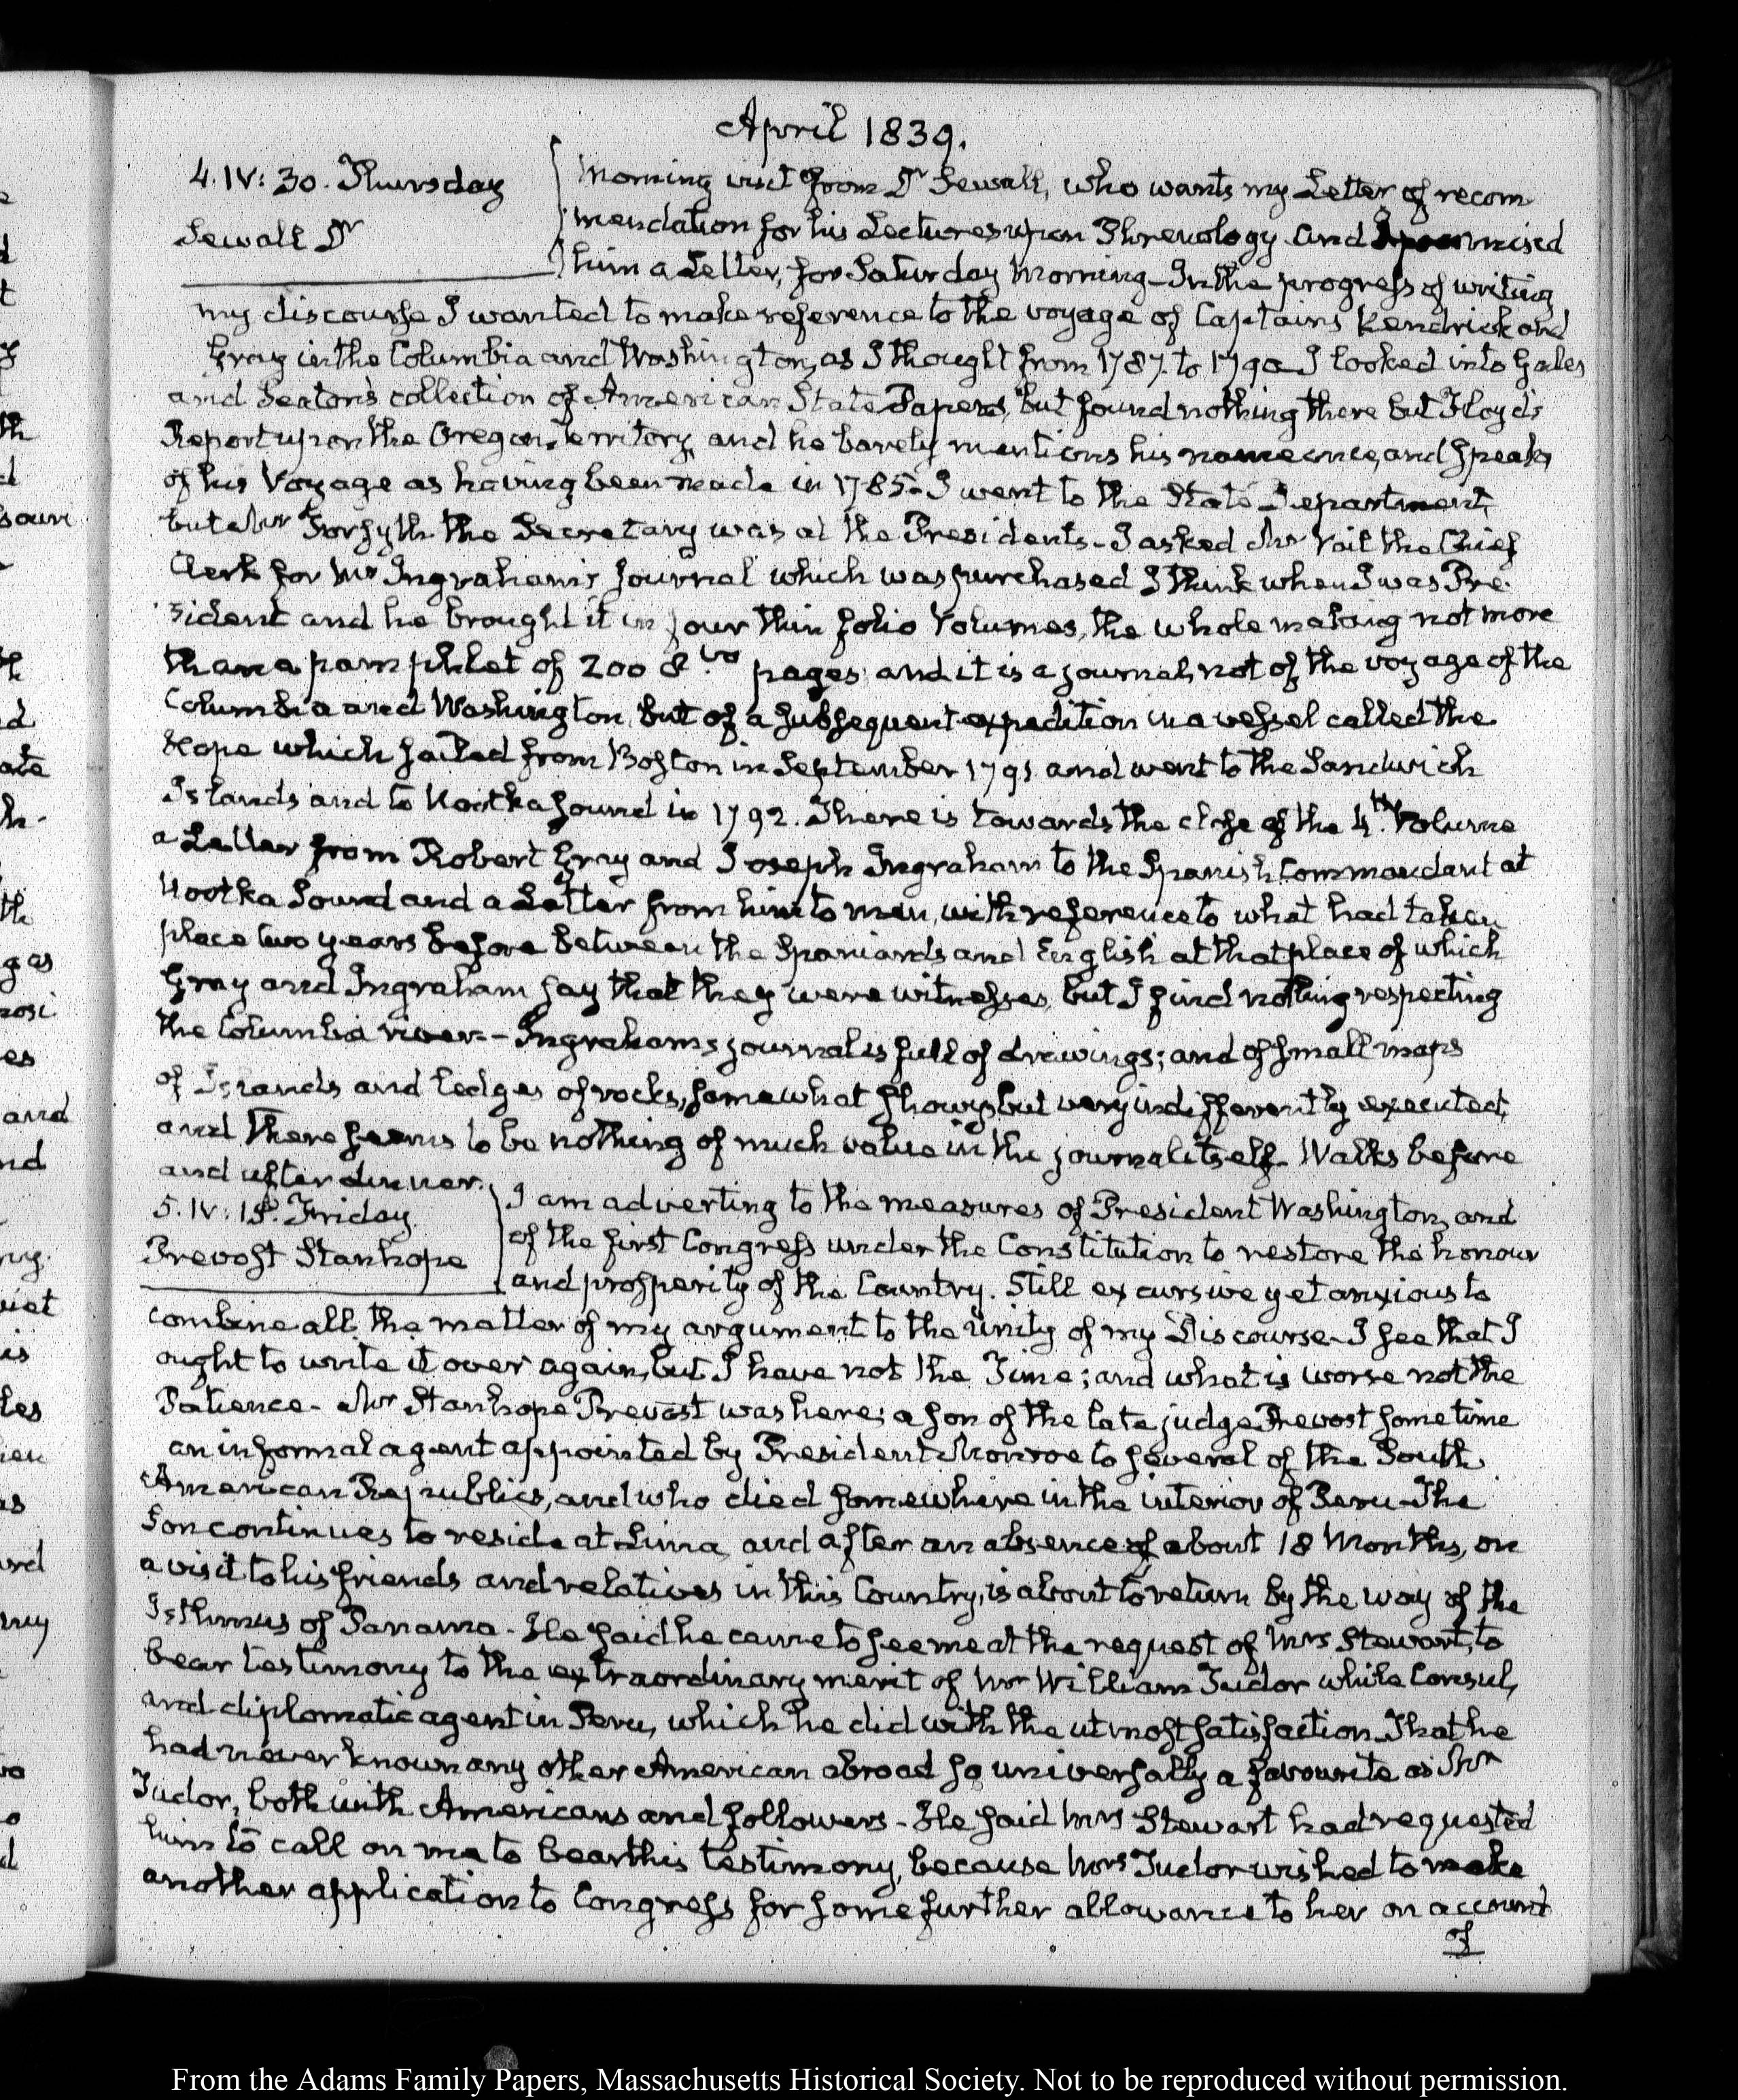 April 1839.
4. IV: 30. Thursday
Sewall Dr
Morning visit from Dr Sewall, who wants my Letter of recom
mendation for his Lectures upon Phrenology. And I promised
him a Letter, for Saturday Morning - In the progress of writing
my discourse I wanted to make reference to the voyage of Captains Kendrick and
Gray in the Columbia and Washington, as I thought from 1787. to 1790. I looked into Gales
and Seaton's collection of American State Papers, but found nothing there but Floyd's
Report upon the Oregon Territory, and he barely mentions his name once, and speaks
of his Voyage as having been made in 1785 - I went to the State Department,
but Mr Forsyth the Secretary was at the Presidents - I asked Mr Vail the Chief
Clerk for Mr Ingraham's journal which was purchased I think when I was Pre-
sident and he brought it in four thin folio Volumes, the whole making not more
than a pamphlet of 200 8.vo pages and it is a journal, not of the voyage of the
Columbia and Washington, but of a subsequent expedition in a vessel called the
Hope which sailed from Boston in September 1791 and went to the Sandwich
Islands and to Nootka Sound in 1792. There is towards the close of the 4.th Volume
a Letter from Robert Gray and Joseph Ingraham to the Spanish Commandant at
Nootka Sound and a Letter from him to them, with reference to what had taken
place two years before between the Spaniards and English at that place of which
Gray and Ingraham say that they were witnesses, but I find nothing respecting
the Columbia river - Ingraham's journal is full of drawings; and of small maps
of Islands and ledges of rocks, somewhat showy, but very indifferently executed,
and there seems to be nothing of much value in the journal itself. Walks before
and after dinner.
5. IV: 15. Friday.
Prevost Stanhope
I am adverting to the measures of President Washington, and
of the first Congress under the Constitution to restore the honour
and prosperity of the Country. Still excursive yet anxious to
combine all the matter of my argument to the unity of my Discourse - I see that I
ought to write it over again, but I have not the Time; and what is worse not the
Patience - Mr Stanhope Prevost was here; a son of the late judge Prevost sometime
an informal agent appointed by President Monroe to several of the South
American Republics, and who died somewhere in the interior of Peru - The
Son continues to reside at Lima, and after an absence of about 18 Months, on
a visit to his friends and relatives in this Country, is about to return by the way of the
Isthmus of Panama - He said he came to see me at the request of Mrs Stewart, to
bear testimony to the extraordinary merit of Mr William Tudor while Consul,
and diplomatic agent in Peru, which he did with the utmost satisfaction. That he
had never known any other American abroad so universally a favourite as Mr
Tudor, both with Americans and followers - He said Mrs Stewart had requested
him to call on me to bear this testimony, because Mrs Tudor wished to make
another application to Congress for some further allowance to her on account
of
From the Adams Family Papers, Massachusetts Historical Society. Not to be reproduced without permission.